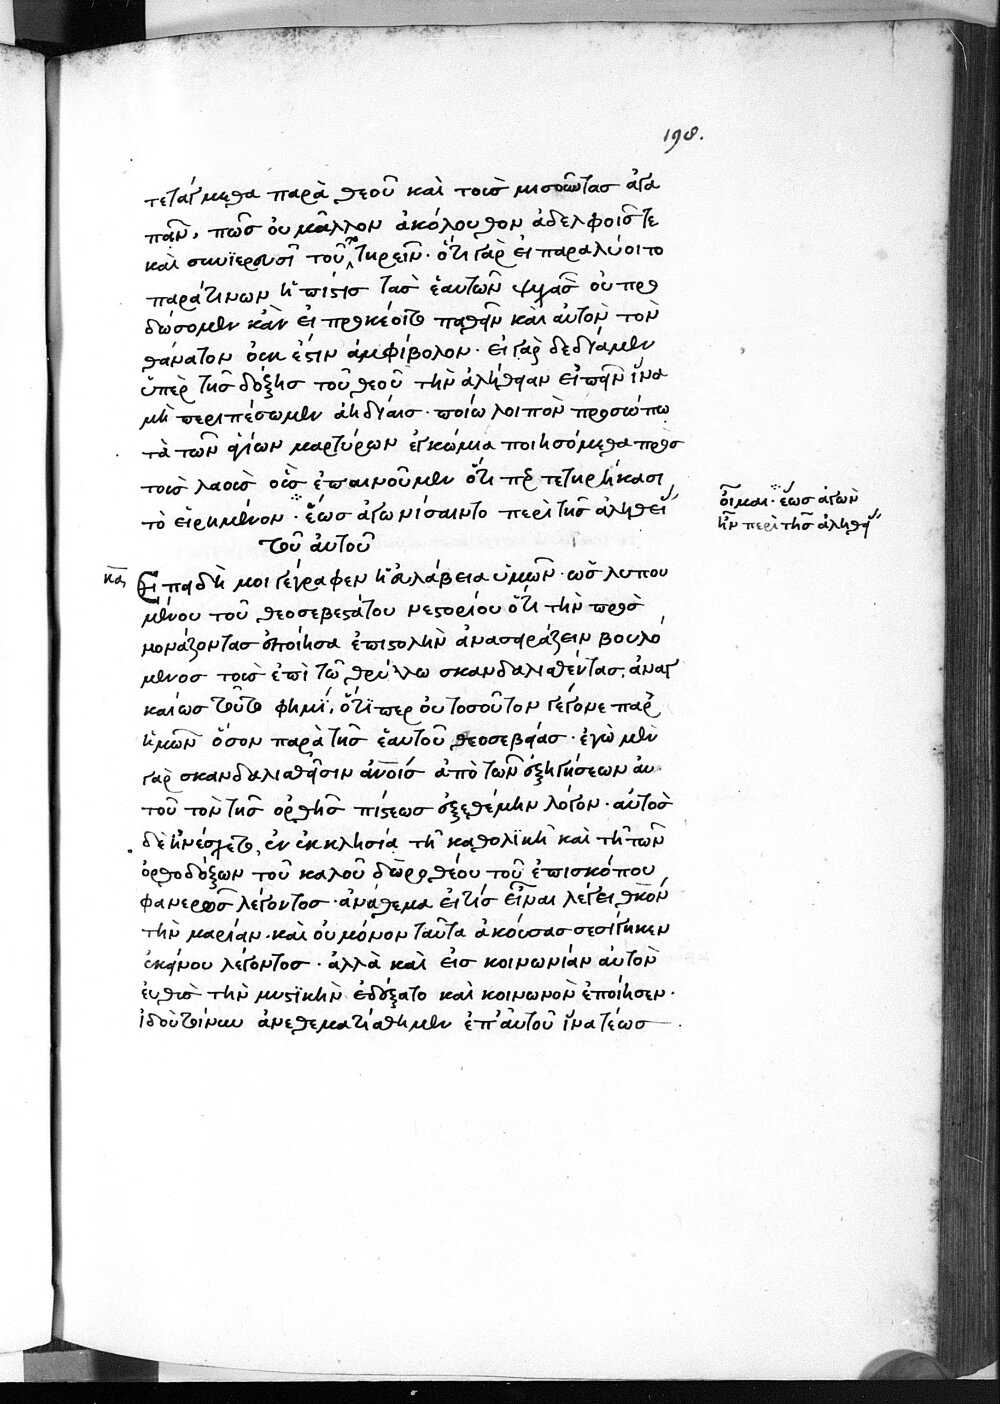 198.
τετάγμεθα παρὰ θεοῦ καὶ τοὺς μισοῦντας ἀγα
πᾶν, πῶς οὐ μᾶλλον ἀκόλουθον ἀδελφοῖς τε
καὶ συνϊερουσι τοῦτο τηρεῖν· ὅτι γὰρ εἰ παραλύοιτο
παρά τινων ἡ πίστις τὰς ἑαυτῶν ψυχὰς οὐ προ
δώσομεν κἂν εἰ προκέοιτο παθεῖν καὶ αὐτὸν τὸν
θάνατον οὐκ ἔστιν ἀμφίβολον· εἰ γὰρ δεδιάμεν
ὑπὲρ τῆς δόξης τοῦ θεοῦ τὴν ἀλήθειαν εἰπεῖν ἵνα
μὴ περιπέσωμεν ἀηδίαις· ποίω λοιπὸν προσώπω
τὰ τῶν ἁγίων μαρτύρων ἐγκώμια ποιησόμεθα πρὸς
τοὺς λαοὺς οὓς ἐπαινοῦμεν ὅτι τετηρήκασι
τὸ εἰρημένον· ἕως ἀγωνίσαιντο περὶ τῆς ἀληθεί
οἶμαι· ἕως ἀγὼν
ἦν περὶ τῆς ἀληθεί
τοῦ αὐτοῦ
κα Ἐπειδή μοι γέγραφεν ἡ εὐλάβεια ὑμῶν· ὡς λυπου
μένου τοῦ θεοσεβεστάτου νεστορίου ὅτι τὴν πρὸς
μονάζοντας ἐποίησα ἐπιστολὴν ἀνασφάζειν βουλό
μενος τοὺς ἐπὶ τῶ θρύλλω σκανδαλισθέντας, ἀναγ
καίως τοῦτο φημὶ, ὅτι περ οὐ τοσοῦτον γέγονε παρ
ἡμῶν ὅσον παρὰ τῆς ἑαυτοῦ θεοσεβείας· ἐγὼ μὲν
γὰρ σκανδαλισθεῖσιν ἀνοις ἀπὸ τῶν ἐξηγήσεων αὐ
τοῦ τὸν τῆς ὀρθῆς πίστεως ἐξεθέμην λόγον· αὐτὸς
δὲ ἠνέσχετο, ἐν ἐκκλησία τῆ καθολϊκῆ καὶ τῆ τῶν
ὀρθοδόξων τοῦ καλοῦ δωροθέου τοῦ ἐπισκόπου
φανερῶς λέγοντος· ἀνάθεμα εἴ τις εἶναι λέγει θκον
τὴν μαρίαν· καὶ οὐ μόνον ταῦτα ἀκούσας σεσίγηκεν
ἐκείνου λέγοντος· ἀλλὰ καὶ εἰς κοινωνίαν αὐτὸν
εὐθὺς τὴν μυστϊκὴν ἐδέξατο καὶ κοινωνὸν ἐποίησεν·
ἰδοὺ τοίνυν ἀνεθεματίσθημεν ἐπ' αὐτοῦ ἵνα τέως